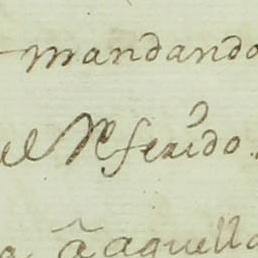 mandando
el Referido.
a aquella